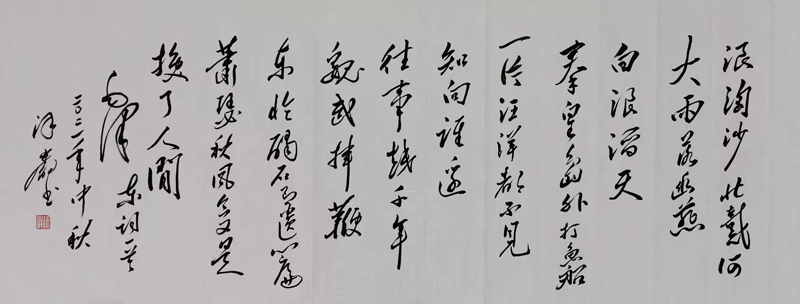 浪淘沙北戴河
大雨落幽燕
白浪滔天
秦皇岛外打鱼船
一片汪洋都不见
知向谁边
往事越千年
魏武挥鞭
东临碣石有遗篇
萧瑟秋风今又是
换了人間
毛泽东词一首
二〇二一年中秋
书